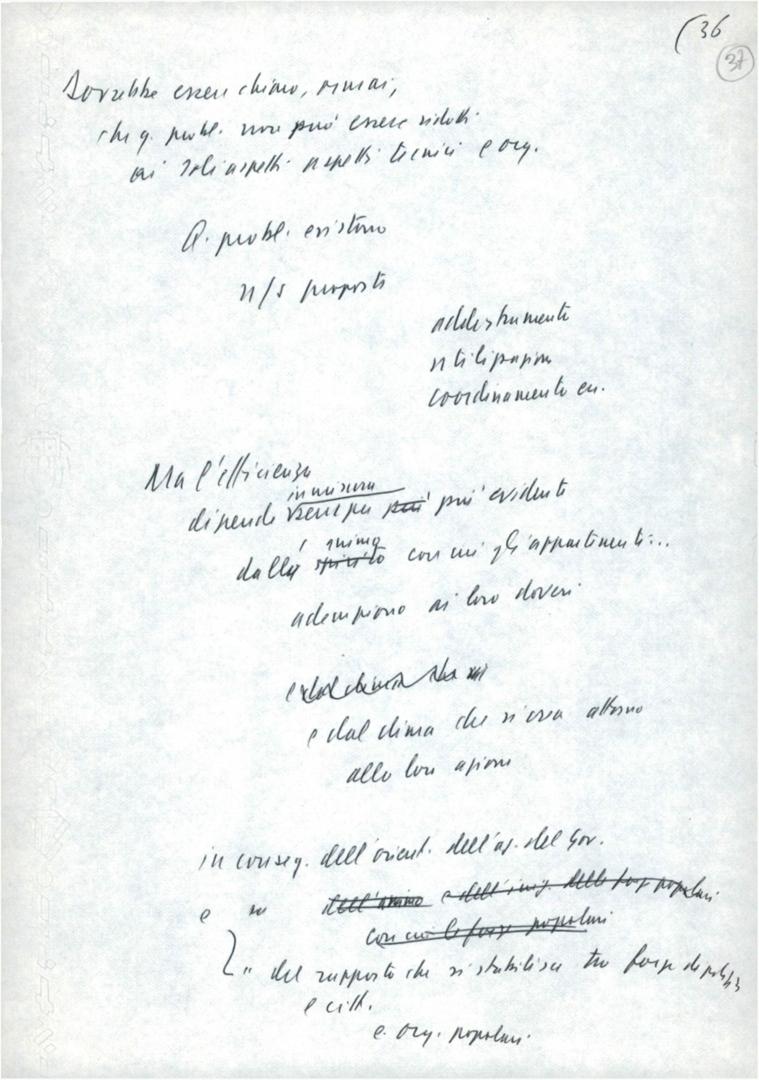 (36
37
Dovrebbe essere chiaro, ormai,
che q. probl. non può essere ridotti
ai soli aspetti aspetti tecnici e org.
Q. probl. esistono
n/s proposte
addestramento
utilizzazione
coordinamento ecc.
Ma l'efficienza
in misura
dipende sempre più più evidente
animo
dallo spirito con cui gli appartenenti...
adempiono ai loro doveri
e dal clima
e dal clima che si crea attorno
alla loro azione
in conseg. dell'orient. dell'az. del Gov.
e dell'animo e dell'impeg. delle forze popolari
con cui le forze popolari
" del rapporto che si stabilisce tra forze di polizia
e citt.
e org. popolari.